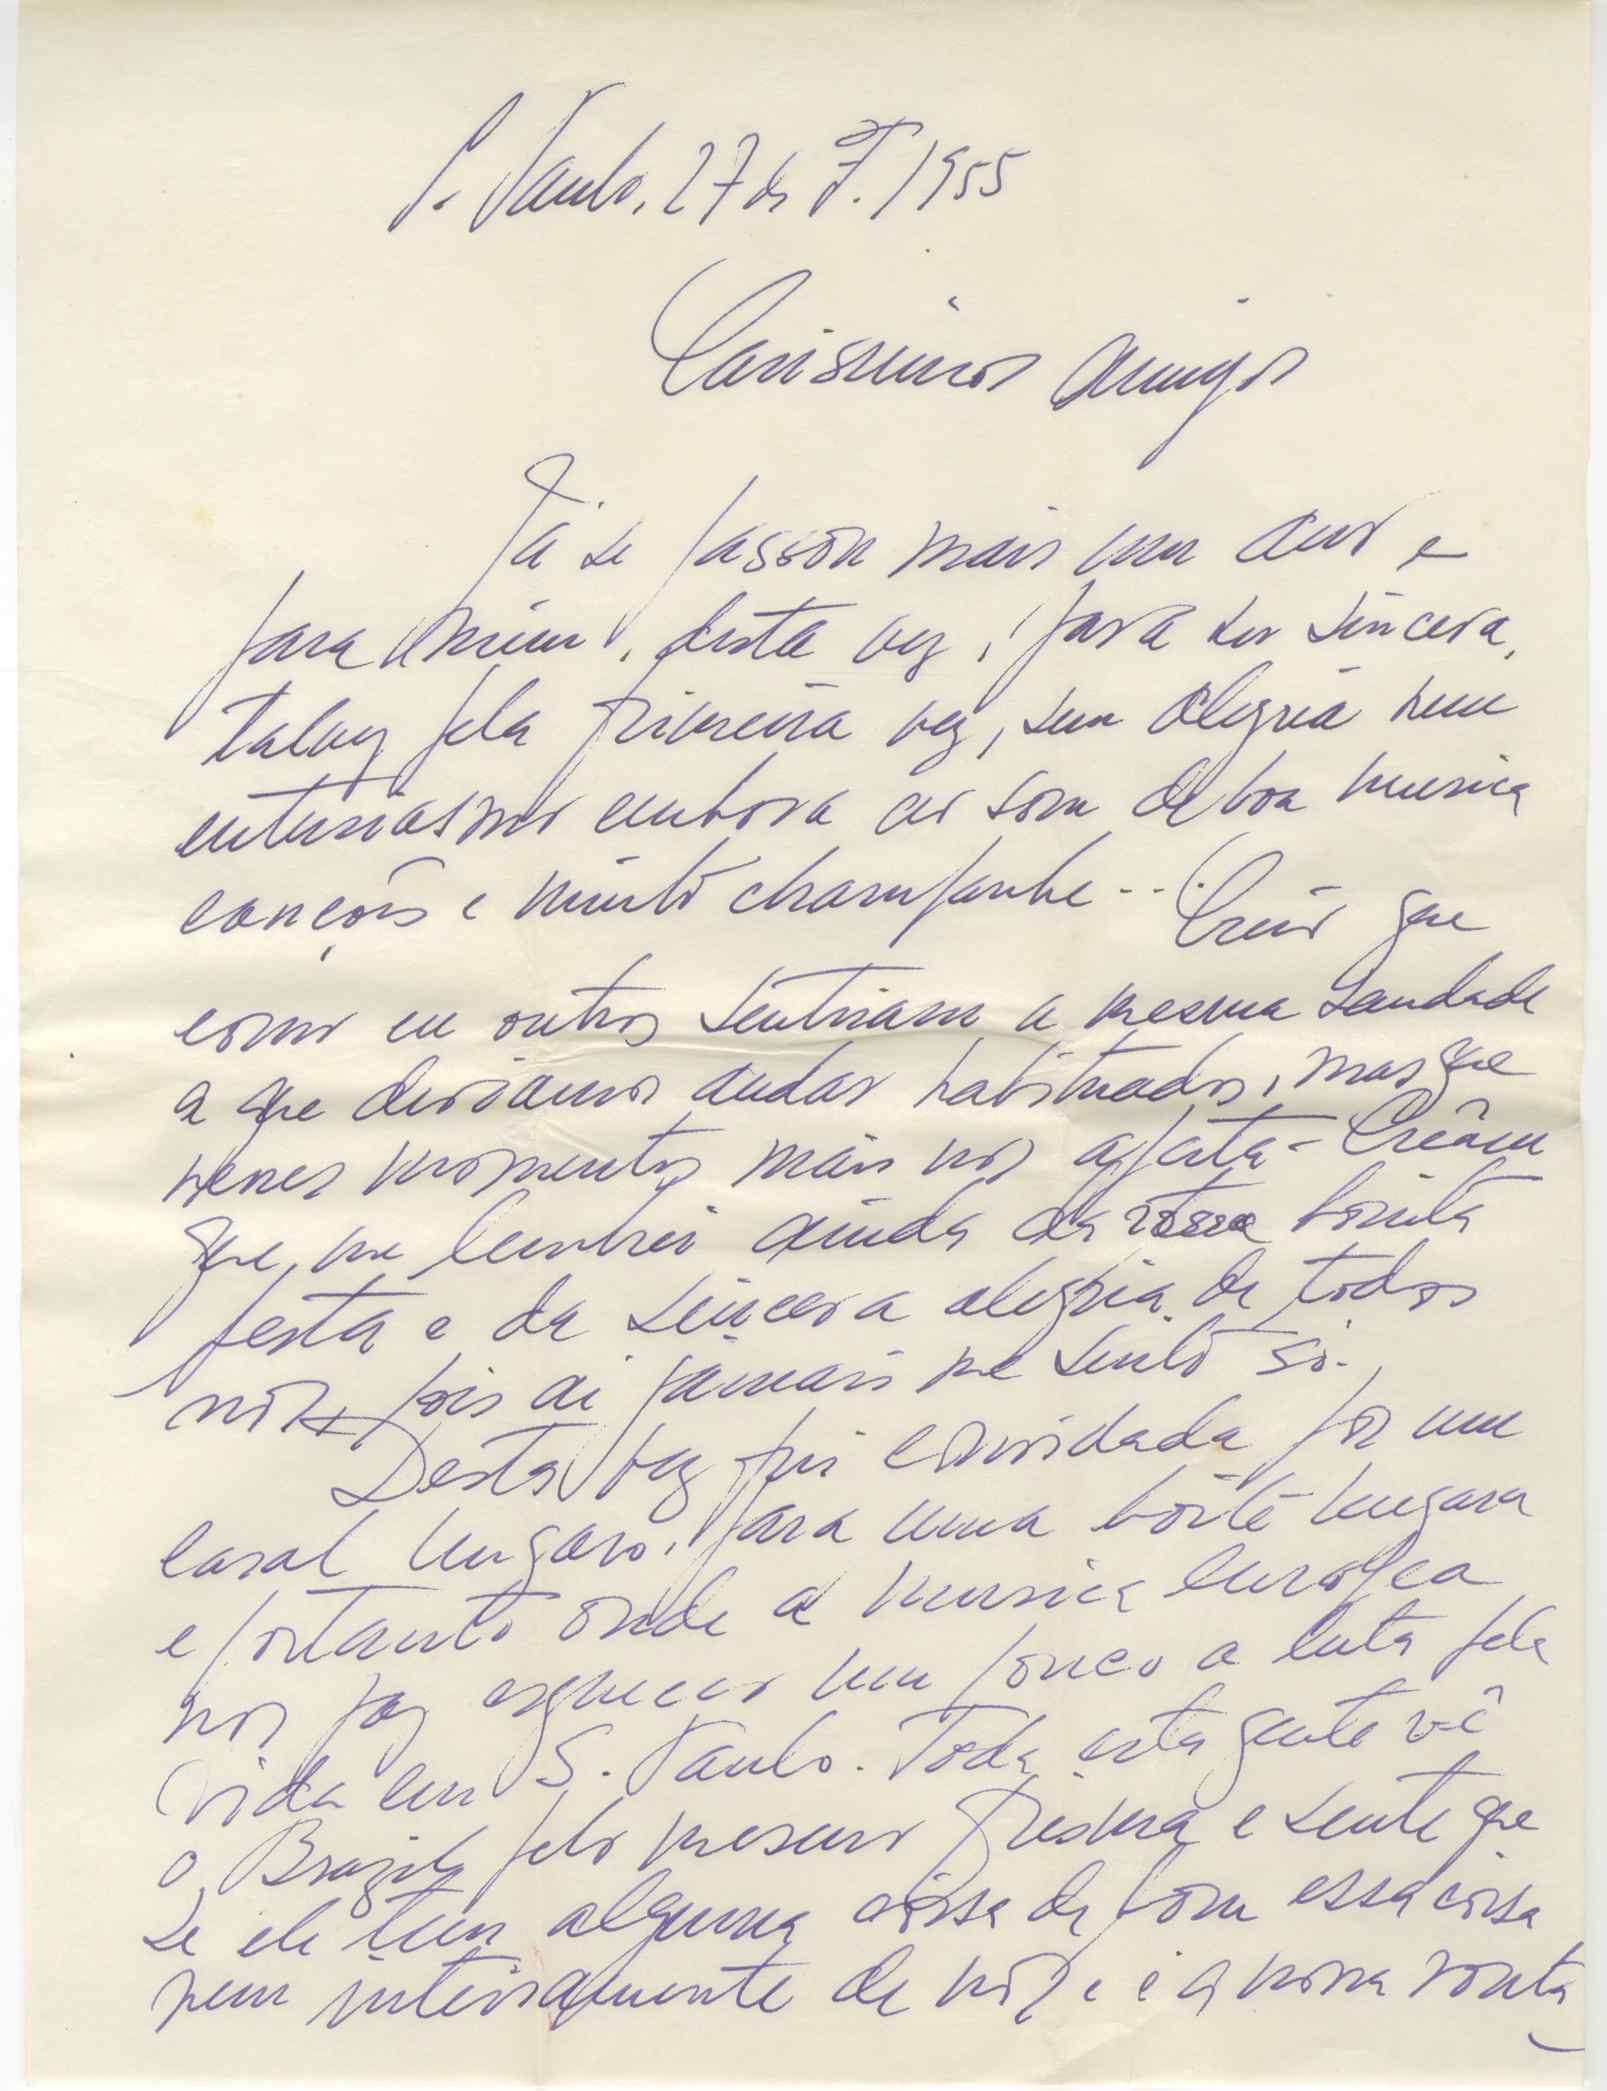 S. Paulo, 27 de I. 1955
Carissimos amigos
Já se passou mais um ano e
para mim, desta vez, para ser sincera,
talvez pela primeira vez, sem alegria nem
entusiasmo embora ao som de boa musica
canções e muito champanhe... Creio que
como eu outros sentiriam a mesma saudade
a que deviamos andar habituados, mas que
nesses momentos mais nos aperta - Creiam
que me lembrei ainda da vossa bonita
festa e da sincera alegria de todos
nós, pois aí jamais me sinto só.
Desta vez fui convidada por um
casal hungaro, para uma boîte hungara
e portanto onde a musica europea
nos faz esquecer um pouco a luta pela
vida em S. Paulo. Toda esta gente vê
o Brazil pelo mesmo prisma e sente que
se ele tem alguma coisa de bom essa coisa
vem inteiramente de nós e é a nossa vonta_